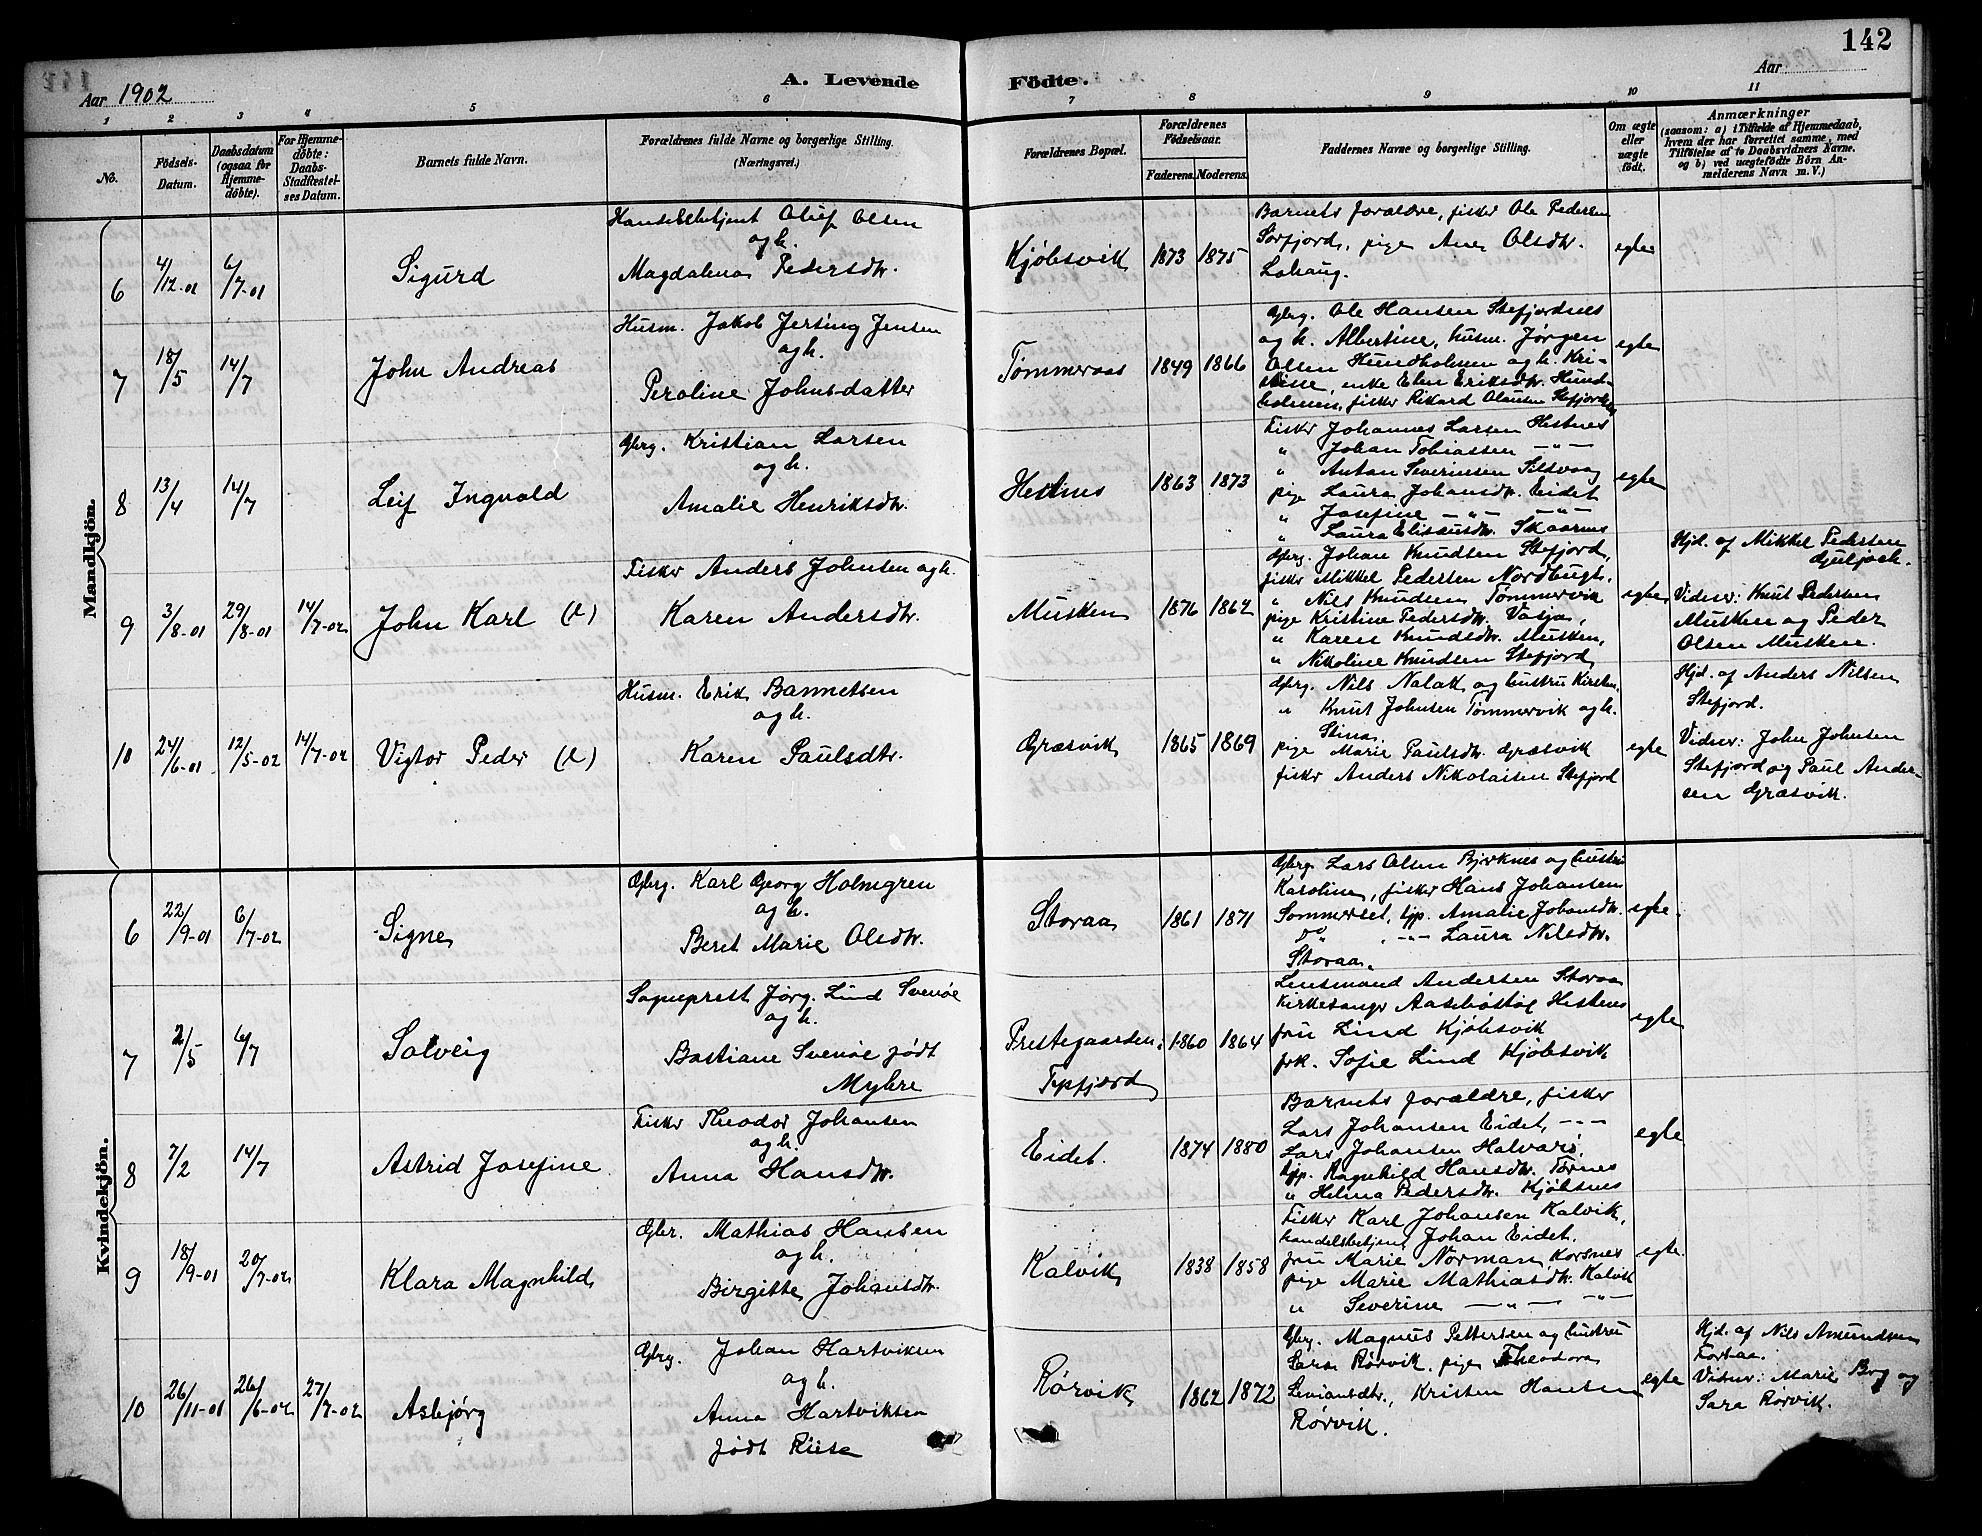 142
Aar 1902
A. Levende
Födte.
Aar
1 2 3 4 5 6 7 8 9 10 11
No.
Födsels-Datum.
Daabsdatum (ogsaa for Hjemmedöbte).
For Hjemmedöbte: Daabs-Stadfæstelses Datum.
Barnets fulde Navn.
Forældrenes fulde Navne og borgerlige Stilling. (Næringsvei.)
Forældrenes Bopæl.
Forældrenes Födselsaar.
Faderens. Moderens.
Faddernes Navne og borgerlige Stilling.
Om ægte eller uægte født.
Anmærkninger
(saasom: a) i Tilfælde af Hjemmedaab, hvem der har forrettet samme, med Tilföielse af to Daabsvidners Navne. og b) ved uægtefödte Börn Anmelderens Navn m. V.)
Mandkjön.
6 4/12-01 6/7-01 Sigurd
Handelsbetjent Oluf Olsen
og h.
Magdalena Pedersdtr.
Kjøbsvik 1873 1875
Barnets forældre, fisker Ole Pedersen
Sørfjord, pige Ane Olsdtr.
Lohaug.
egte
7 18/5 14/7 John Andreas
Husm. Jakob Jersing Jensen
og h.
Peroline Johnsdatter
Tømmeraas 1849 1866
Gbrg. Ole Hansen Stefjordnes
og h. Albertine, husm. Jørgen
Olsen Hundholmen og h. Kri-
stine, enke Elen Eriksdtr. Hund-
holmen, fisker Rikard Olausen Stefjordnes
egte
8 13/4 14/7 Leif Ingvald
Gbrg. Kristian Larsen
og h.
Amalie Henriksdtr.
Hestnes 1863 1873
Fisker Johannes Larsen Hestnes
" Johan Tobiassen — " —
" Anton Severinsen Silsvaag
pige Laura Johansdtr. Eidet
" Josefine — " — — " —
" Laura Elisæusdtr. Skaarnes
egte
9 3/8-01 29/8-01 14/7-02 John Karl (l)
Fisker Anders Johnsen og h.
Karen Andersdtr.
Musken 1876 1862
Gbrg. Johan Knudsen Stefjord,
fisker Mikkel Pedersen Nordbugt.
" Nils Knudsen Tømmervik
pige Kristine Pedersdtr. Vasja,
" Karen Knudsdtr. Musken,
" Nikoline Knudsen Stefjord
egte
Hjd. af Mikkel Pedersen
Gjuljock.
Vidner: Knut Pedersen
Musken og Peder
Olsen Musken.
10 24/6-01 12/5-02 14/7-02 Vigtor Peder (l)
Husm. Erik Bannetsen
og h.
Karen Paulsdtr.
Græsvik 1865 1869
Gbrg. Nils Nalak og hustru Kirsten.
" Knut Johnsen Tømmervik og h.
Stina,
pige Marie Paulsdtr. Græsvik
fisker Anders Nikolaisen Stefjord
egte
Hjd. af Anders Nilsen
Stefjord.
Vidner: John Johnsen
Stefjord og Paul Ander-
sen Græsvik.
Kvindekjön.
6 22/9-01 6/7-02 Signe
Gbrg. Karl Georg Holmgren
og h.
Beret Marie Olsdtr.
Storaa 1861 1871
Gbrg. Lars Olsen Bjerknes og hustru
Karoline, fisker Hans Johansen
Sommerset, tjp. Amalie Johansdtr.
Do " , — " — Laura Nilsdtr.
Storaa.
egte.
7 2/5 6/7 Solveig
Sogneprest Jørg. Lind Svenøe
og h.
Bastiane Svenøe født
Myhre
Prestegaarden, 1860 1864
Tepfjord
Lensmand Andersen Storaa
Kirkesanger Aasebøstøl Hestnes
fru Lind Kjøbsvik
frk. Sofie Lind Kjøbsvik
egte
8 7/2 14/7 Astrid Josefine
Fisker Theodor Johansen
og h.
Anna Hansdtr.
Eidet. 1874 1880
Barnets forældre, fisker
Lars Johansen Eidet, — " —
Lars Johansen Halvarø,
tjp. Ragnhild Hansdtr. Tørnes
" Helma Pedersdtr. Kjøbsnes
egte
9 18/9-01 20/7-02 Klara Magnhild
Gbr. Mathias Hansen
og h.
Birgitte Johansdtr.
Kalvik 1838 1858
Fisker Karl Johansen Kalvik,
handelsbetjent Johan Eidet.
fru Marie Norman, Korsnes
pige Marie Mathiasdtr. Kalvik
" Severine — " — — " —
egte.
10 26/11-01 26/6-02 27/7-02 Asbjørg
Gbrg. Johan Hartviksen
og h.
Anna Hartviksen
født Riise
Rørvik 1862 1872
Gbrg. Magnus Pettersen og hustru
Sara Rørvik, pige Theodora
Leviansdtr., Kristen Hansen
Rørvik.
egte
Hjd. af Nils Amundsen
Forsaa.
Vidner: Marie Brg og
Sara Rørvik.